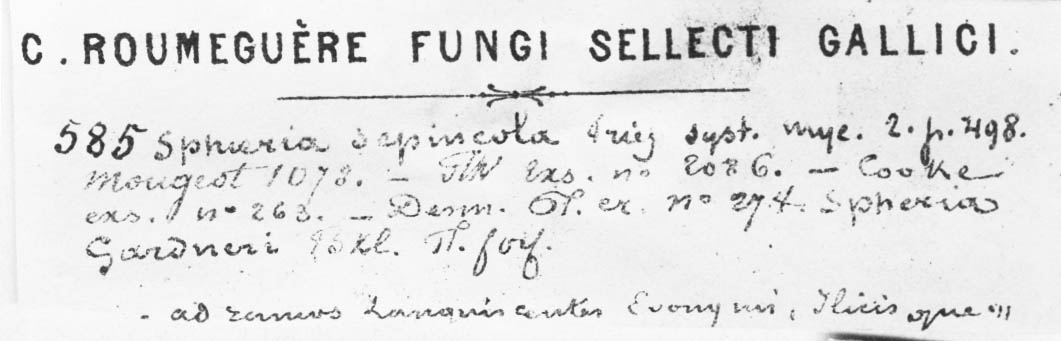 C. ROUMEGUÈRE FUNGI SELLECTI GALLICI.
585 Spheria sepincola Friej syst. myc. 2. p. 498.
Mougeot 1078. - Exs. no 2086. - Cooke
exs. no 263. - Desm. Pl. er. no 274. Spheria
Gardneri Pl. foss.
- ad ramos languiscentes Evonymi, Ilicis que